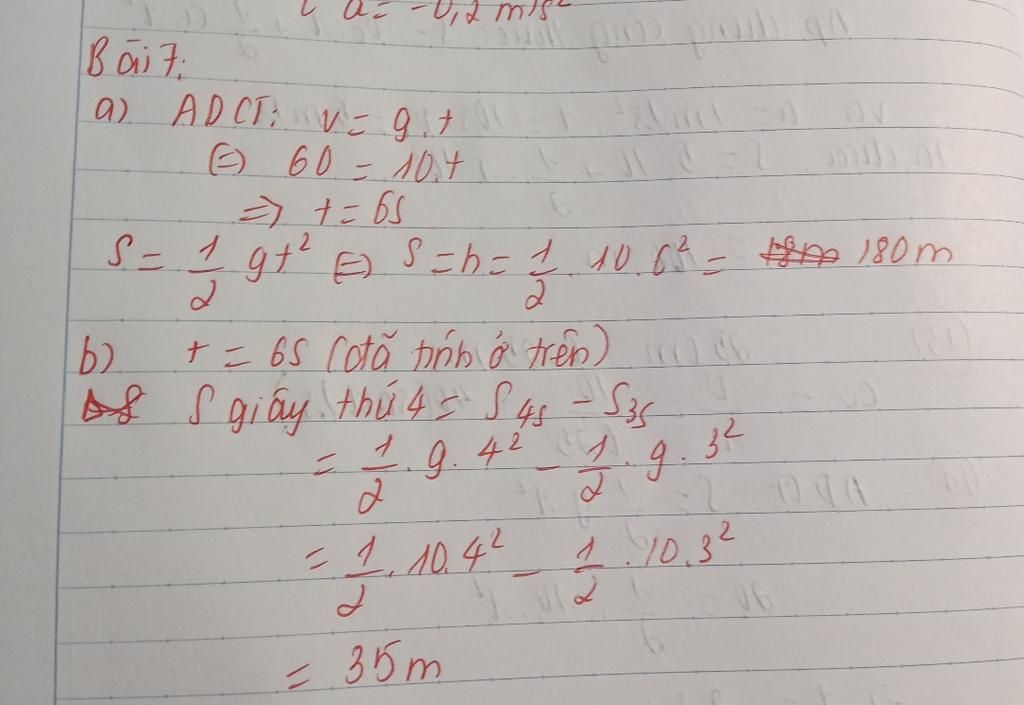 a = -0,2 m/s²
Bài 7:
a) ADCT: v = g.t
⇔ 60 = 10.t
=> t = 6s
S = 1/2 gt² ⇔ S = h = 1/2 . 10 . 6² = 180m
b) t = 6s (đã tính ở trên)
S giây thứ 4 = S4s - S3s
= 1/2 . g . 4² - 1/2 . g . 3²
= 1/2 . 10 . 4² - 1/2 . 10 . 3²
= 35m